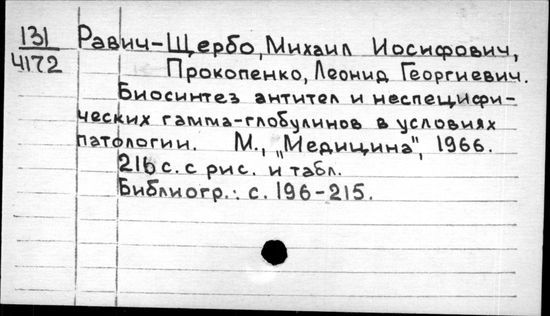 131 Равич-Щербо, Михаил Иосифович,
4172 Прокопенко, Леонид Георгиевич.
Биосинтез антител и неспецифи-
ческих гамма-глобулинов в условиях
патологии. М., „Медицина", 1966.
216 с. с рис. и табл.
Библиогр.: с. 196-215.